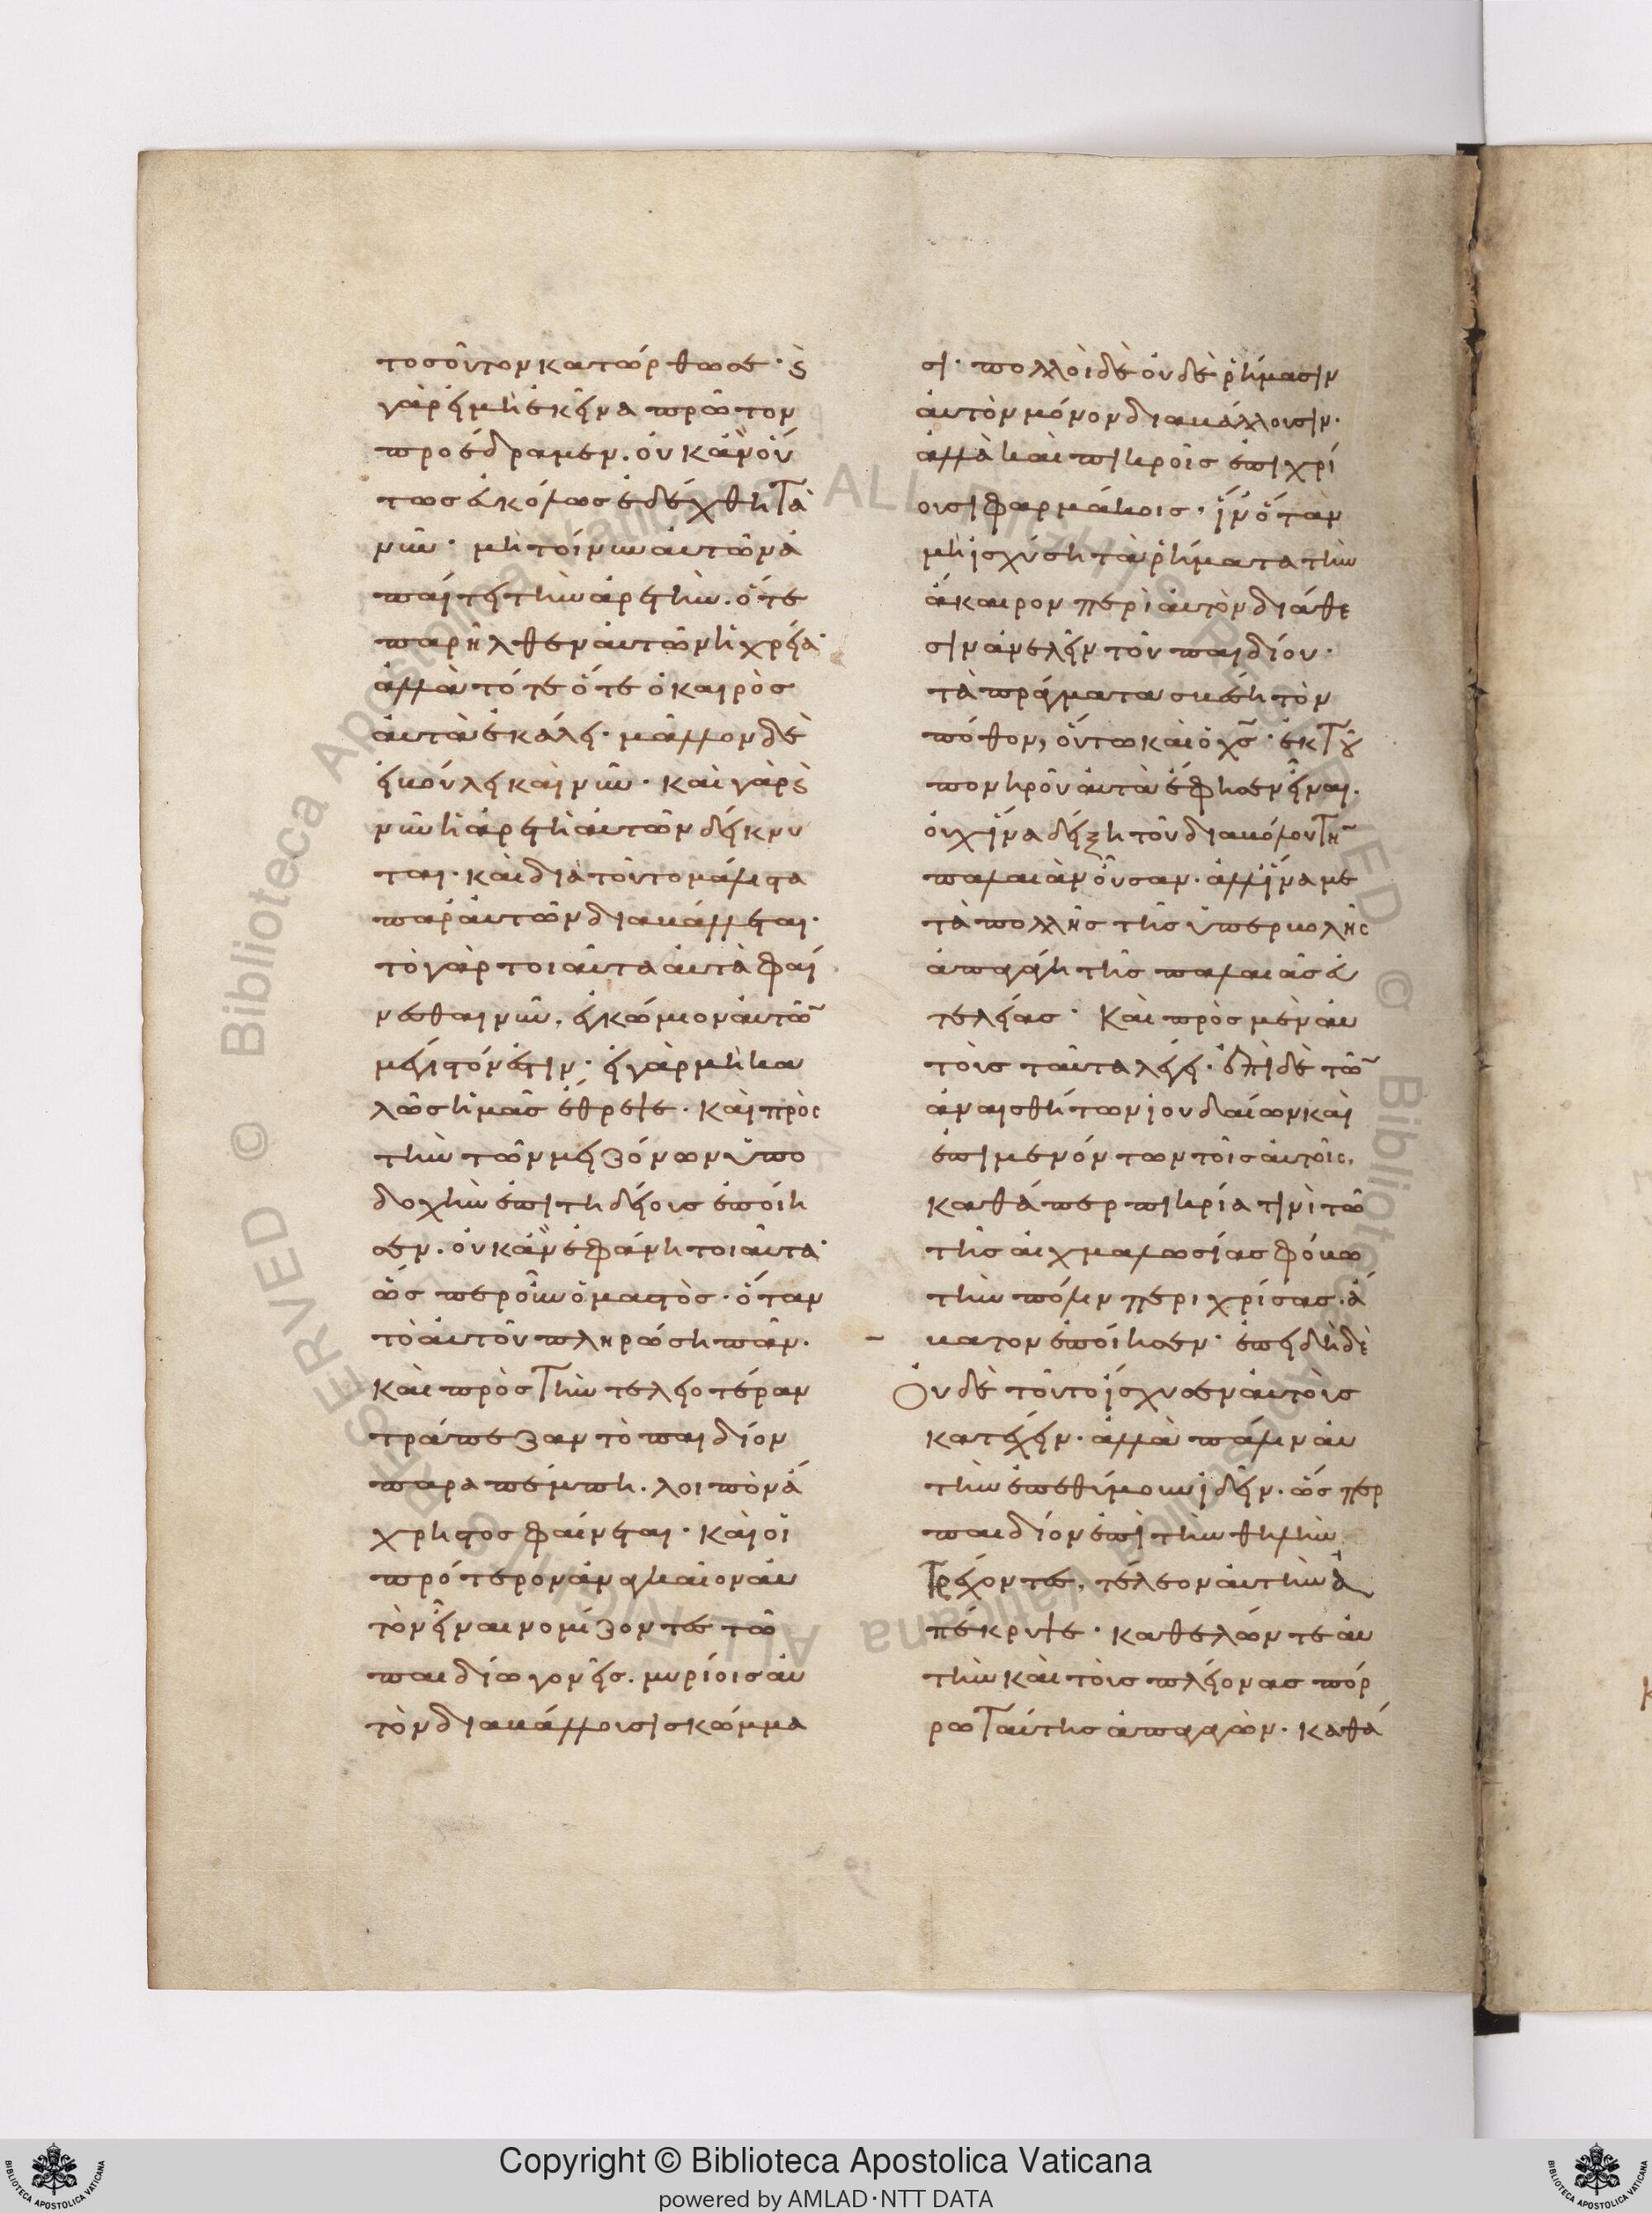 τοσοῦτον κατώρθωσε· εἰ
γὰρ εἰ μὴ ἐκεῖνα πρῶτον
προέδραμεν. οὐκ ἂν οὕ
τως εὐκόλως ἐδέχθη τὰ
νῦν· μὴ τοίνυν αὐτῶν ἀ
παίτει τὴν ἀρετὴν. ὅτε
παρῆλθεν αὐτῶν ἡ χρεία·
ἀλλὰ τότε ὅτε ὁ καιρὸς
αὐτὰ ἐκάλει· μᾶλλον δὲ
εἰ βούλει καὶ νῦν· καὶ γὰρ καὶ
νῦν ἡ ἀρετὴ αὐτῶν δείκνυ
ται· καὶ διὰ τοῦτο μάλιστα
παρ' αὐτῶν διαβάλλεται·
τὸ γὰρ τοιαῦτα αὐτὰ φαί
νεσθαι νῦν, ἐγκώμιον αὐτῶν
μέγιστόν ἐστιν· εἰ γὰρ μὴ κα
λῶς ἡμᾶς ἔθρεψε· καὶ πρὸς
τὴν τῶν μειζόνων ὑπο
δοχὴν ἐπιτηδείους ἐποίη
σεν. οὐκ ἂν ἐφάνη τοιαῦτα·
ὥσπερ οὖν ὁ μαστὸς· ὅταν
τὸ αὐτοῦ πληρώση πᾶν.
καὶ πρὸς τὴν τελειοτέραν
τράπεζαν τὸ παιδίον
παραπέμπη. λοιπὸν ἄ
χρηστος φαίνεται· καὶ οἱ
πρότερον ἀναγκαῖον αὐ
τὸν εἶναι νομίζοντες τῶ
παιδίω γονεῖς. μυρίοις αὐ
τὸν διαβάλλουσι σκώμμα
σι· πολλοὶ δὲ οὐδὲ ῥήμασιν
αὐτὸν μόνον διαβάλλουσιν.
ἀλλὰ καὶ πικροῖς ἐπιχρί
ουσι φαρμάκοις· ἵν' ὅταν
μὴ ἰσχύση τὰ ῥήματα τὴν
ἄκαιρον περὶ αὐτὸν διάθε
σιν ἀνελεῖν τοῦ παιδίου·
τὰ πράγματα σβέση τὸν
πόθον, οὕτω καὶ ὁ χς· ἐκ τοῦ
πονηροῦ αὐτὰ ἔφησεν εἶναι.
οὐχ ἵνα δείξη τοῦ διαβόλου τὴν
παλαιὰν οὖσαν. ἀλλ' ἵνα με
τὰ πολλῆς τῆς ὑπερβολῆς
ἀπαγάγη τῆς παλαιᾶς εὐ
τελείας· Καὶ πρὸς μὲν αὐ
τοὺς ταῦτα λέγει· ἐπὶ δὲ τῶν
ἀναισθήτων ἰουδαίων καὶ
ἐπιμενόντων τοῖς αὐτοῖς,
καθάπερ πικρία τινὶ τῶ
τῆς αἰχμαλωσίας φόβω
τὴν πόλιν περιχρίσας. ἄ
βατον ἐποίησεν· ἐπειδὴ δὲ
Οὐδὲ τοῦτο ἴσχυσεν αὐτοὺς
κατέχειν. ἀλλὰ πάλιν αὐ
τὴν ἐπεθύμουν ἰδεῖν. ὥσπερ
παιδίον ἐπὶ τὴν θηλὴν
τρέχοντες, τέλεον αὐτὴν ἀ
πέκρυψε· καθελών τε αὐ
τὴν καὶ τοὺς πλείονας πόρ
ρω ταύτης ἀπαγαγὼν· καθά